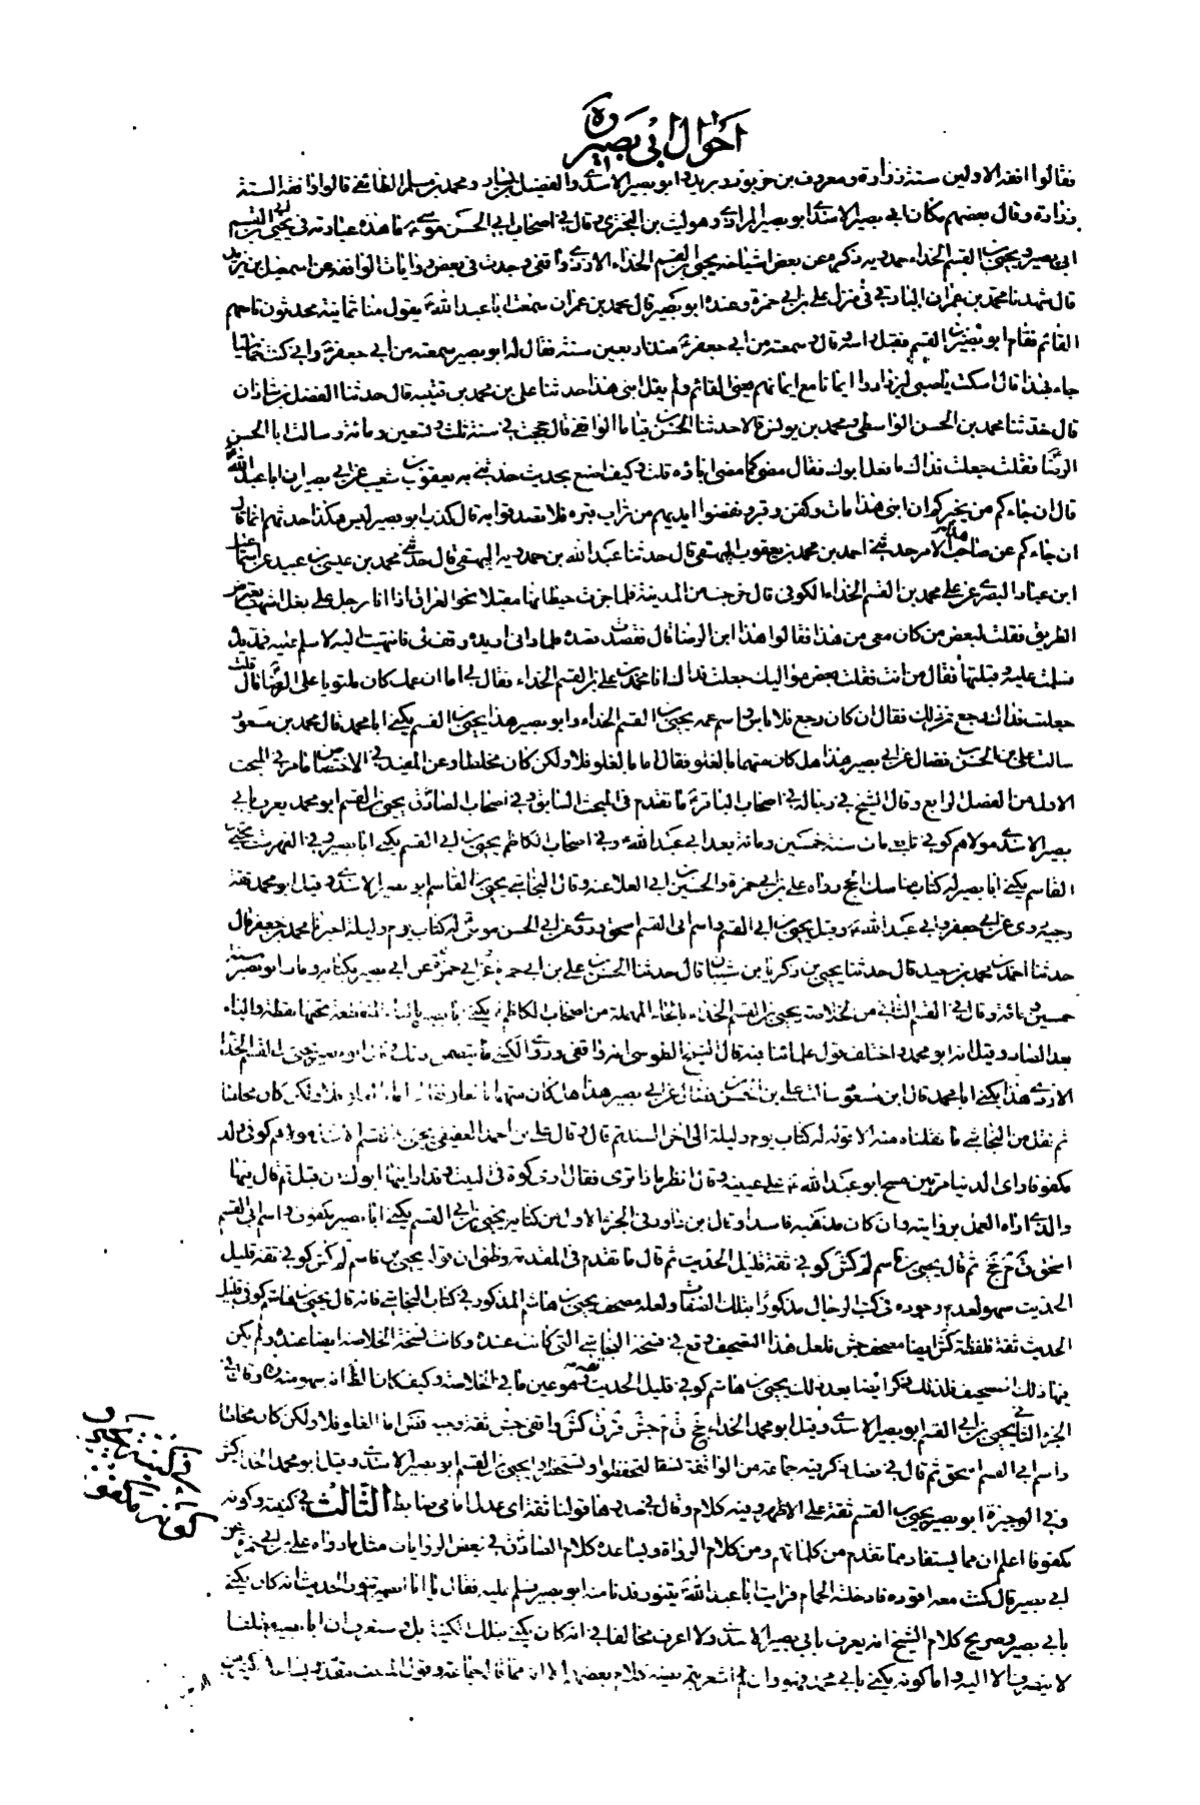 احوال ابی بصیر ره
فقالوا افقه الاولین ستة زرارة ومعروف بن خربوذ وبرید وابو بصیر الاسدی والفضیل بن یسار ومحمد بن مسلم الطائفی قالوا وافقه الستة
زرارة وقال بعضهم مکان ابی بصیر الاسدی ابو بصیر المرادی وهو لیث بن البختری وقال فی اصحاب ابی الحسن موسی ع ما هذه عبارته فی یحیی بن ابی القسم
ابی بصیر ویحیی بن القسم الحذاء حمدویه ذکره عن بعض اشیاخه یحیی بن القسم الحذاء الازدی واقفی وجدت فی بعض روایات الواقفة عن اسمعیل بن یزید
قال شهدنا محمد بن عمران الباقری فی منزل علی بن ابی حمزة وعنده ابو بصیر قال محمد بن عمران سمعت ابا عبد الله ع یقول منا ثمانیة محدثون تاسعهم
القائم فقام ابو بصیر بن القسم فقبل راسه وقال سمعته من ابی جعفر ع منذ اربعین سنة فقال له ابو بصیر سمعته من ابی جعفر ع وانی کنت خماسیا
جاء بهذا قال اسکت یا صبی لیزدادوا ایمانا مع ایمانهم یعنی القائم ولم یقل ابنی هذا حدثنا علی بن محمد بن قتیبه قال حدثنا الفضل بن شاذان
قال حدثنا محمد بن الحسن الواسطی ومحمد بن یونس قالا حدثنا الحسن بن قیاما الواقفی قال حججت فی سنة ثلث وتسعین ومائة وسالت ابا الحسن
الرضا فقلت جعلت فداک ما فعل ابوک فقال مضی کما مضی اباؤه قلت وکیف اصنع بحدیث حدثنی به یعقوب بن شعیب عن ابی بصیر ان ابا عبد الله ع
قال ان جاءکم من یخبرکم ان ابنی هذا مات وکفن وقبر ونفضوا ایدیهم من تراب قبره فلا تصدقوا به قال کذب ابو بصیر لیس هکذا حدثهم انما قال
ان جاءکم عن صاحب هذا الامر حدثنی احمد بن محمد بن یعقوب البیهقی قال حدثنا عبد الله بن حمدویه البیهقی قال حدثنی محمد بن عیسی بن عبید عن اسمعیل
ابن عباد البصری عن علی محمد بن القسم الحذاء الکوفی قال خرجت من المدینة فلما جزت حیطانها مقبلا نحو العراق اذا انا برجل علی بغل اشهب یعترض
الطریق فقلت لبعض من کان معی من هذا فقالوا هذا ابن الرضا قال فقصدت قصده فلما رانی اریده وقف لی فانتهیت الیه لاسلم علیه فمد یده
فسلمت علیه وقبلتها فقال من انت فقلت بعض موالیک جعلت فداک انا محمد بن علی بن القسم الحذاء فقال لی اما ان عمک کان ملتویا علی الرضا قال قلت
جعلت فداک رجع عن ذلک فقال ان کان رجع فلا باس واسم عمه یحیی بن القسم الحذاء وابو بصیر هذا یحیی بن القسم یکنی ابا محمد قال محمد بن مسعود
سالت علی بن الحسن بن فضال عن ابی بصیر هذا هل کان متهما بالغلو فقال اما بالغلو فلا ولکن کان مخلطا وعن المفید فی الاختصاص ما مر فی المبحث
الاول من الفصل الرابع وقال الشیخ فی رجاله فی اصحاب الباقر ع ما تقدم فی المبحث السابق وفی اصحاب الصادق یحیی بن القسم ابو محمد یعرف بابی
بصیر الاسدی مولاهم کوفی تابعی مات سنة خمسین ومائة بعد ابی عبد الله ع وفی اصحاب الکاظم یحیی بن ابی القسم یکنی ابا بصیر وفی الفهرست یحیی بن
القاسم یکنی ابا بصیر له کتاب مناسک الحج رواه علی بن ابی حمزة والحسین بن ابی العلا عنه وقال النجاشی یحیی بن القاسم ابو بصیر الاسدی وقیل ابو محمد ثقة
وجیه روی عن ابی جعفر وابی عبد الله ع وقیل یحیی بن ابی القسم واسم ابی القسم اسحق وروی عن ابی الحسن موسی له کتاب یوم ولیلة اخبرنا محمد بن جعفر قال
حدثنا احمد بن محمد بن سعید قال حدثنا یحیی بن زکریا بن شیبان قال حدثنا الحسن بن علی بن ابی حمزة عن ابی حمزة عن ابی بصیر بکتابه ومات ابو بصیر سنة
خمسین ومائة وقال فی القسم الثانی من الخلاصة یحیی بن القسم الحذاء بالحاء المهملة من اصحاب الکاظم ع یکنی ابا بصیر نقطة والیاء
بعد الصاد وقیل انه ابو محمد واختلف قول علمائنا فیه قال الشیخ الطوسی انه واقفی وروی الکشی ما یتضمن ذلک قال وابو بصیر یحیی بن القسم الحذاء
الازدی هذا یکنی ابا محمد قال ابن مسعود سالت علی بن الحسن بن فضال عن ابی بصیر هذا هل کان متهما بالغلو فقال اما الغلو فلا ولکن کان مخلطا
ثم نقل من النجاشی ما نقلناه منه الا قوله له کتاب یوم ولیلة الی اخر السند ثم قال وقال علی بن احمد العقیقی یحیی بن القسم الاسدی مولاهم کوفی ولد
مکفوفا رای الدنیا مرتین مسح ابو عبد الله ع علی عینیه وقال انظر ماذا تری فقال اری کوة فی البیت وقد ارانیها ابوک من قبل ثم قال فیها
والذی اراه العمل بروایته وان کان مذهبه فاسدا وقال بن داود فی الجزء الاول من کتابه یحیی بن ابی القسم یکنی ابا بصیر مکفوف واسم ابی القسم
اسحق ق م جخ ثم قال یحیی بن قاسم لم کش کوفی ثقة قلیل الحدیث ثم قال ما تقدم فی المقدمة وظنی ان قوله یحیی بن قاسم لم کش کوفی ثقة قلیل
الحدیث سهو لعدم وجوده فی کتب الرجال مذکورا بتلک الصفات ولعله مصحف یحیی بن هاشم المذکور فی کتاب النجاشی فانه قال یحیی بن هاشم کوفی قلیل
الحدیث ثقة فلفظة کش ایضا مصحف جش فلعل هذا التصحیف وقع فی نسخة النجاشی التی کانت عنده وکانت نسخة الخلاصة ایضا عنده ولم یکن
فیها ذلک التصحیف فلذلک ذکر ایضا بعد ذلک یحیی بن هاشم کوفی قلیل الحدیث ثقة وهو عین ما فی الخلاصة وکیف کان الظاهر انه سهو منه وقال فی
الجزء الثانی یحیی بن ابی القسم ابو بصیر الاسدی وقیل ابو محمد الحذاء جخ ق م جش قر ق کش واقفی جش ثقة وجیه کش اما الغلو فلا ولکن کان مخلطا
واسم ابی القسم اسحق ثم قال فی جماعة من الواقفة یحیی بن القسم ابو بصیر الاسدی وقیل ابو محمد الحذاء کش
وفی الوجیزة ابو بصیر یحیی بن القسم ثقة علی الاظهر وفیه کلام الثالث فی کنیته وکونه
مکفوفا اعلم ان مما یستفاد مما تقدم من کلماتهم ومن کلام الرواة ویساعده کلام الصادق فی بعض الروایات مثل ما رواه علی بن ابی حمزة عن
ابی بصیر قال کنت معه اقوده فادخلته الحمام فرایت ابا عبد الله ع یتنور فدنا منه ابو بصیر فسلم علیه فقال یا ابا بصیر تنور الحدیث انه کان یکنی
بابی بصیر وصریح کلام الشیخ انه یعرف بابی بصیر الاسدی ولا اعرف مخالفا فی انه کان یکنی بتلک الکنیة بل ان ابا بصیر مطلقا
لا ینصرف الا الیه واما کونه یکنی بابی محمد فهو وان
فی کنیة یحیی و
کونه مکفوفا